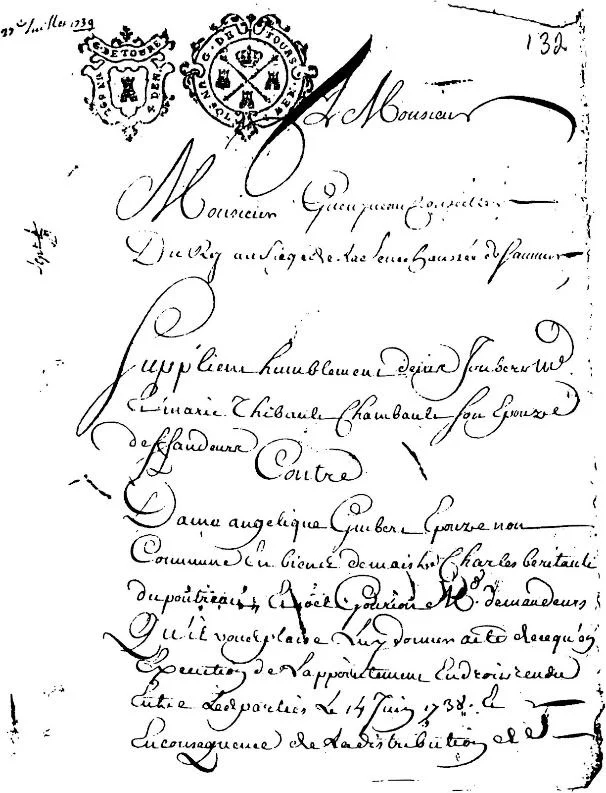 Juillet 1739
G. DE TOURS
G. DE TOURS
UN SOL
DEN
132
A Monsieur
Monsieur Conseiller
Du Roy au Siege de la Senechaussée de Saumur
Supplient humblement Joubert Md
Et marie Thibault Chambault son Epouze
deffandeurs
Contre
Dame angelique Guibert Epouze non
Commune En biens de maistre Charles beritault
du Et noel Gourion Md demandeurs
Qu'il vous plaise Luy donner acte de ce qu'en
Execution de L'appointement En droit rendu
Entre Les parties Le 14 Juin 1738 Et
En consequence de La distribution